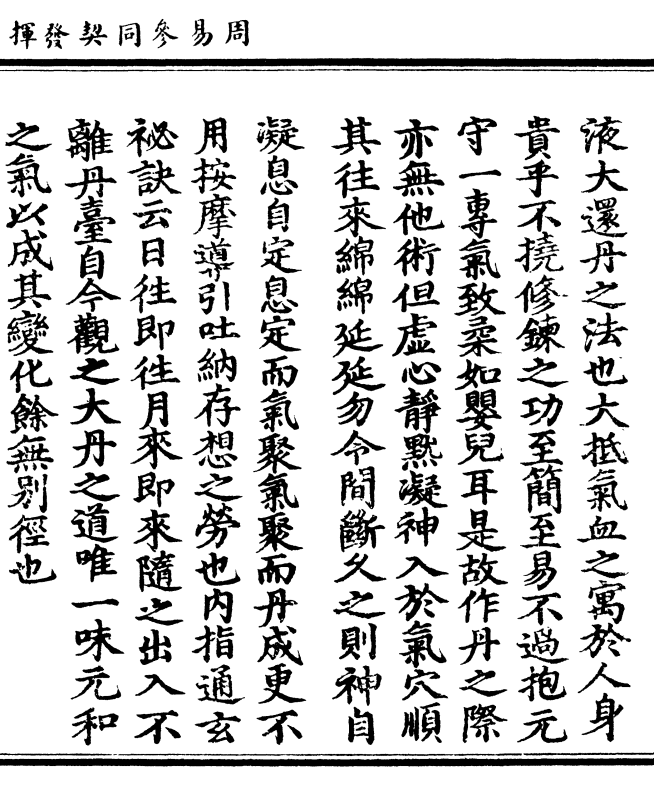 周易參同契發揮
液大還丹之法也大抵氣血之寓於人身
貴乎不撓修鍊之功至簡至易不過抱元
守一專氣致柔如嬰兒耳是故作丹之際
亦無他術但虛心靜默凝神入於氣穴順
其往來綿綿延延勿令間斷久之則神自
凝息自定息定而氣聚氣聚而丹成更不
用按摩導引吐納存想之勞也內指通玄
祕訣云日徃即徃月來即來隨之出入不
離丹臺自今觀之大丹之道唯一味元和
之氣以成其變化餘無別徑也